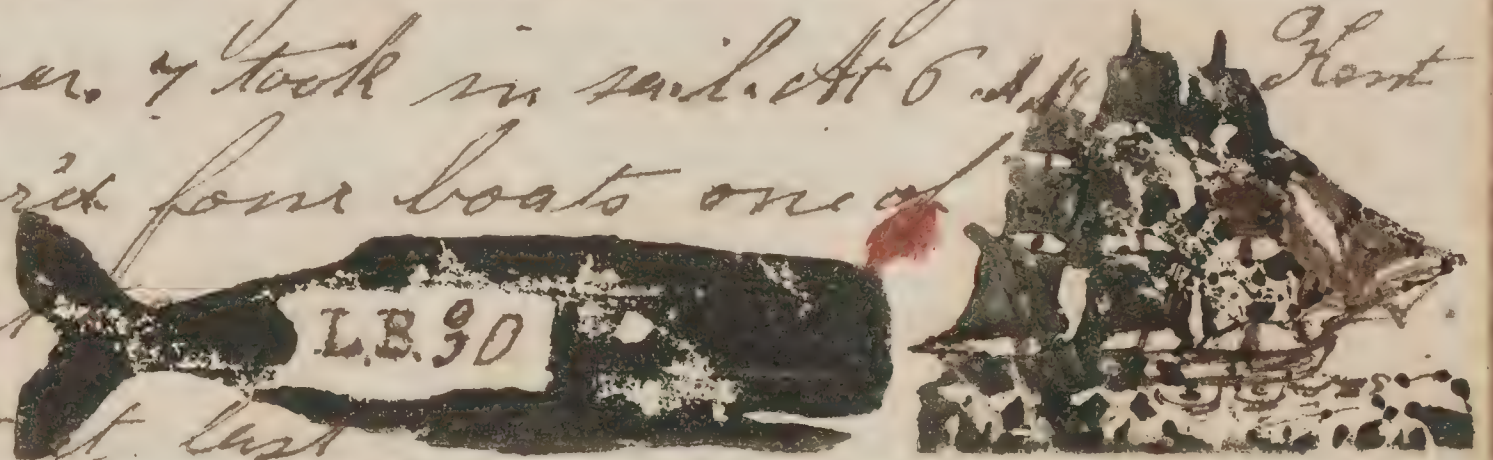 took in sail. At 6 A.M.
four boats one of
L.B. 90
last